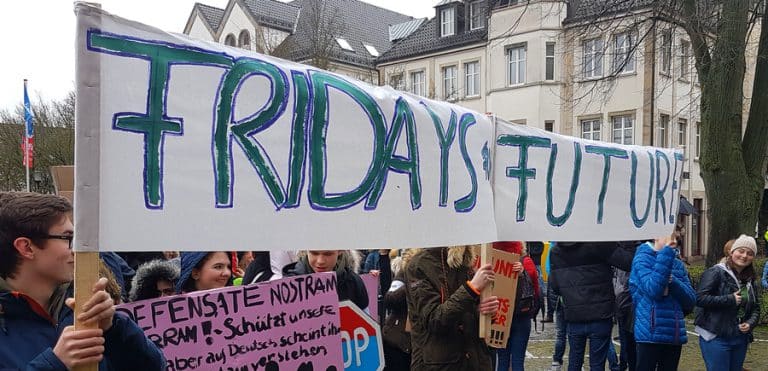 FRIDAYS FUTURE
DEFENSATE NOSTRAM
RRAM! - Schützt unsere
aber auf Deutsch scheint ihr
verstehen
OP
!!!